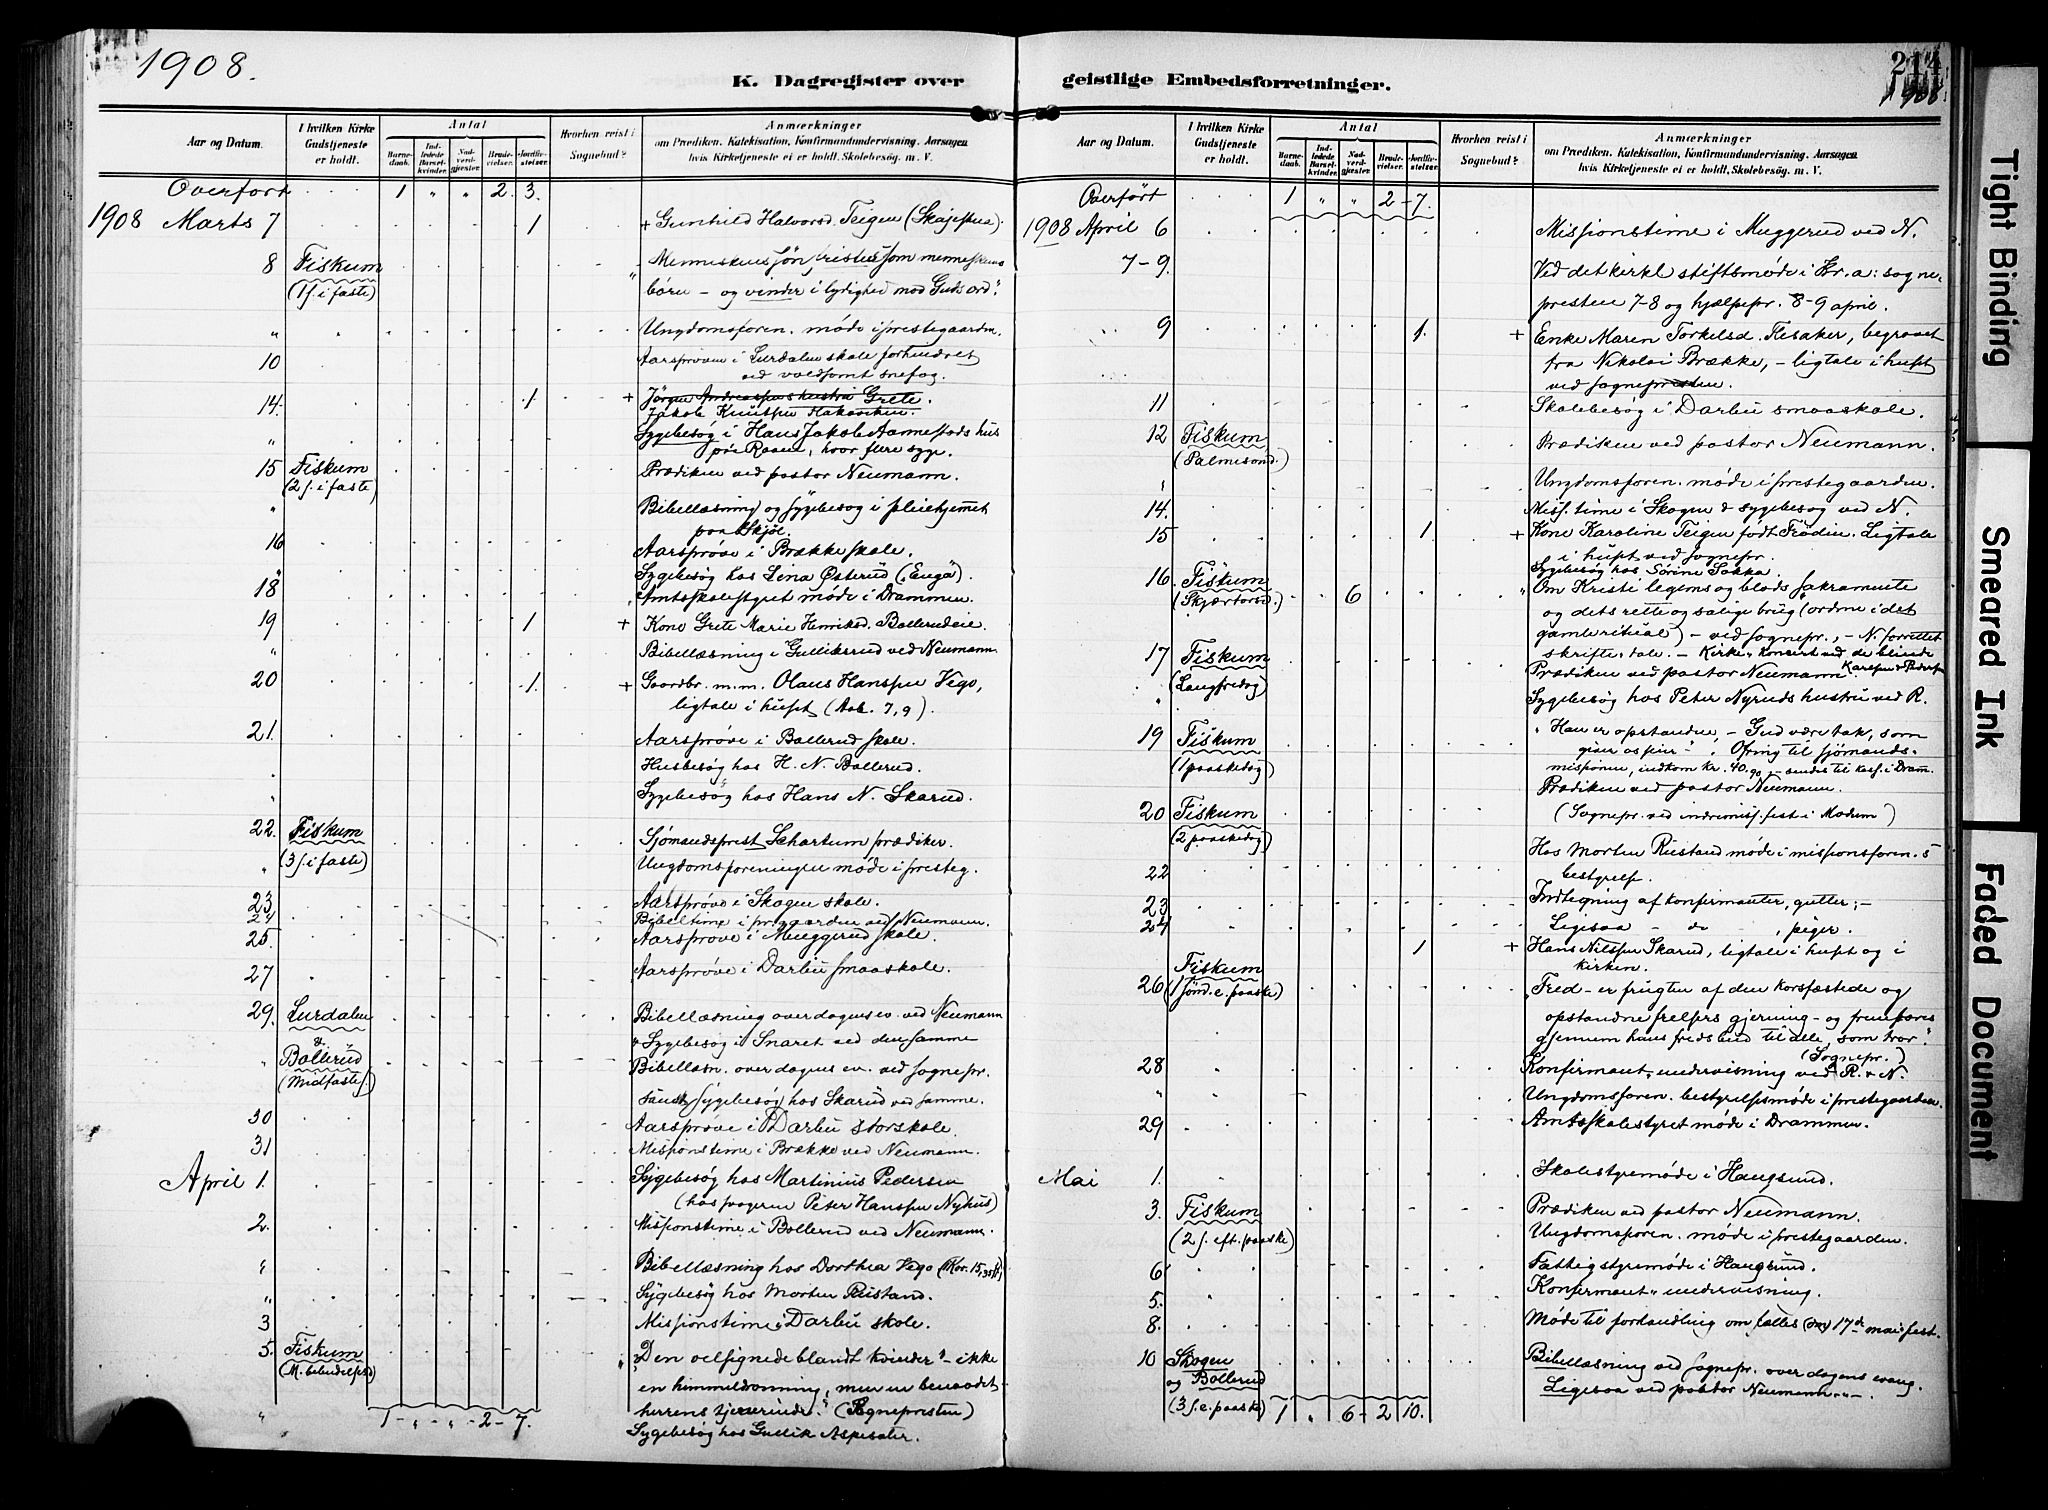 1908.
K. Dagregister over
Aar og Datum.
I hvilken Kirke Gudstjeneste er holdt.
Antal
Barnedaab.
Indledede Barselkvinder.
Nadverdgjester.
Brudevielser.
Jordfæstelser.
Hvorhen reist i Sognebud?
Anmærkninger
om Prædiken. Katekisation, Konfirmandundervisning. Aarsagen
hvis Kirketjeneste ei er holdt. Skolebesøg. m. V.
Overført 1 „ „ 2. 3.
1908 Marts 7 1 + Gunhild Halvorsd. Teigen (Skajestua).
8 Fiskum Menneskens søn, frister som menneskens
(1 s. i faste) børn – og vinder i lydighed mod Guds ord".
„ Ungdomsforen. møde i prestegaarden.
10 Aarsprøven i Lurdalen skole forhindret
ved voldsomt snefog.
14. 1 + Jörgen Andreassens hustru Grete.
Jakob Knutsen Hakaviken.
„ Sygebesög i Hans Jakob Aarnestads hus
paa Raaen, hvor flere syge.
15 Fiskum Prædiken ved pastor Neumann.
(2 s. i faste)
„ Bibellæsning og sygebesøg i pleiehjemmet
paa Skjøl.
16 Aarsprøve i Brække skole.
„ Sygebesög hos Lina Østerud (Enga).
18 Amtsskolestyret møde i Drammen.
19 1 + Kone Grete Marie Henriksd. Bollerudeie.
„ Bibellæsning i Gulliksrud ved Neumann.
20 1. + Gaardbr. m.m. Olaus Hansen Vego,
ligtale i huset (Aab. 7,9).
21. Aarsprøve i Bollerud skole.
„ Husbesög hos H. N. Bollerud.
„ Sygebesög hos Hans N. Skarud.
22. Fiskum Sjömandsprest Schartum prædiker.
(3 s. i faste)
„ Ungdomsforeningen møde i presteg.
23 Aarsprøve i Skogen skole.
24 Bibeltime i pr.gaarden ved Neumann.
25. Aarsprøve i Muggerud skole.
27 Aarsprøve i Darbu smaaskole.
29. Lurdalen Bibellæsning over dagens ev. ved Neumann
& Sygebesög i Snaret ved den samme
„ Bollerud Bibellæsn. over dagens ev. ved sognepr.
(Midfaste s.) samt sygebesög hos Skarud ved samme.
30 Aarsprøve i Darbu storskole.
31 Missionstime i Brække ved Neumann.
April 1. Sygebesög hos Martinius Pedersen
(hos svogeren Peter Hansen Nyhus)
2. Missionstime i Bollerud ved Neumann.
„ Bibellæsning hos Dorthea Vego
„ Sygebesög hos Morten Rustand.
3 Missionstime i Darbu skole.
5. Fiskum „Den velsignede blandt kvinder" – ikke
(M. bebudelsesd) en himmeldronning, men en benaadet
herrens tjenerinde." (Sognepresten)
„ Sygebesög hos Gullik Aspesæter.
1 – „ – „ – 2 – 7.
geistlige Embedsforretninger.
214
1908
Aar og Datum.
I hvilken Kirke Gudstjeneste er holdt.
Antal
Barnedaab.
Indledede Barselkvinder.
Nadverdgjester.
Brudevielser.
Jordfæstelser.
Hvorhen reist i Sognebud?
Anmærkninger
om Prædiken. Katekisation, Konfirmandundervisning. Aarsagen
hvis Kirketjeneste ei er holdt, Skolebesøg. m. V.
Overført 1 „ „ 2 – 7.
1908 April 6 Missionstime i Muggerud ved N.
7–9. Ved det kirkl. stiftsmøde i Kr.a: sogne-
presten 7-8 og hjælpepr. 8-9 april.
9 1. + Enke Maren Torkelsd. Fisaker, begravet
fra Nikolai Brække, – ligtale i huset
ved sognepresten.
11 Skolebesøg i Darbu smaaskole.
12 Fiskum Prædiken ved pastor Neumann.
(Palmesønd.)
„ Ungdomsforen. møde i prestegaarden.
14. Miss.time i Skogen & sygebesøg ved N.
15 1 + Kone Karoline Teigen født Frödin. Ligtale
i huset ved sognepr.
Sygebesøg hos Sörine Sakka.
16 Fiskum 6 „Om Kristi legems og blods sakramente
(Skjærtorsd.) og dets rette og salige brug (ordne i det
gamle ritual) – ved sognepr., – N. forrettet
skrifte-tale. – Kirke-konsert ved de blinde
17 Fiskum Prædiken ved pastor Neumann
(Langfredag)
„ Sygebesøg hos Peter Nyruds hustru ved R.
19 Fiskum „Han er opstanden, – Gud være tak, som
(1 paaskedag) giver os seier". Ofring til sjömands-
missionen, indkom kr. 40.90 – sendes til kass. i Dram.
20 Fiskum Prædiken ved pastor Neumann.
(2 paaskedag) (Sognepr. ved indremiss. fest i Modum)
22 Hos Morten Rustand møde i missionsforen.s
bestyrelse.
23 Indtegning af konfirmanter, gutter; –
24 Ligesaa – do – , piger.
1 + Hans Nilsen Skarud, ligtale i huset og i
kirken.
26 Fiskum „Fred – er frugten af den korsfæstede og
(1 sönd. e. paaske) opstandne frelsers gjerning – og frembæres
gjennem hans fredsbud til alle, som tror".
(Sognepr.)
28 Konfirmant-undervisning ved R. & N.
„ Ungdomsforen. bestyrelsesmøde i prestegaarden.
29 Amtsskolestyret møde i Drammen.
Mai 1. Skolestyremøde i Haugsund.
3. Fiskum Prædiken ved pastor Neumann.
(2 s. eft. paaske) Ungdomsforen. møde i prestegaarden.
6 Fattigstyremøde i Haugsund.
5. Konfirmant-undervisning.
8. Møde til forhandling om fælles 17de mai fest.
10 Skogen Bibellæsning ved sognepr. over dagens evang.
og Bollerud Ligesaa ved pastor Neumann –„–.
(3 s. e. paaske)
1 „ 6 – 2 10.
Tight Binding
Smeared Ink
Faded Document